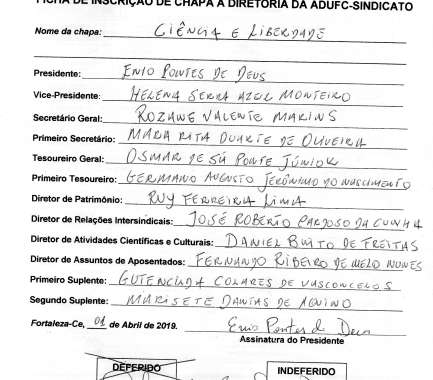 FICHA DE INSCRIÇÃO DE CHAPA À DIRETORIA DA ADUFC-SINDICATO
Nome da chapa: CIÊNCIA E LIBERDADE
Presidente: ENIO PONTES DE DEUS
Vice-Presidente: HELENA SERRA AZUL MONTEIRO
Secretário Geral: ROZANE VALENTE MARINS
Primeiro Secretário: MARIA RITA DUARTE DE OLIVEIRA
Tesoureiro Geral: OSMAR DE SÁ PONTE JÚNIOR
Primeiro Tesoureiro: GERMANO AUGUSTO JERÔNIMO DO NASCIMENTO
Diretor de Patrimônio: RUY FERREIRA LIMA
Diretor de Relações Intersindicais: JOSÉ ROBERTO CARDOSO DA CUNHA
Diretor de Atividades Científicas e Culturais: DANIEL BRITO DE FREITAS
Diretor de Assuntos de Aposentados: FERNANDO RIBEIRO DE MELO NUNES
Primeiro Suplente: GUTENCILDA COLARES DE VASCONCELOS
Segundo Suplente: MARISETE DANTAS DE AQUINO
Fortaleza-Ce, 01 de Abril de 2019. Enio Pontes de Deus
Assinatura do Presidente
DEFERIDO INDEFERIDO